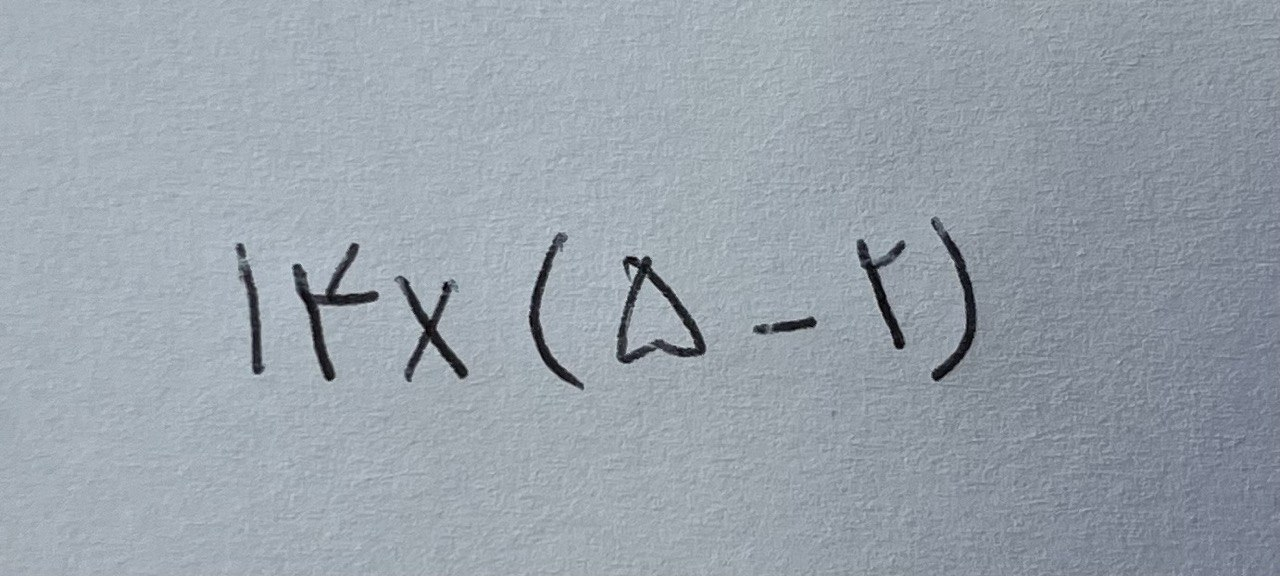 ۱۴×(۵-۲)